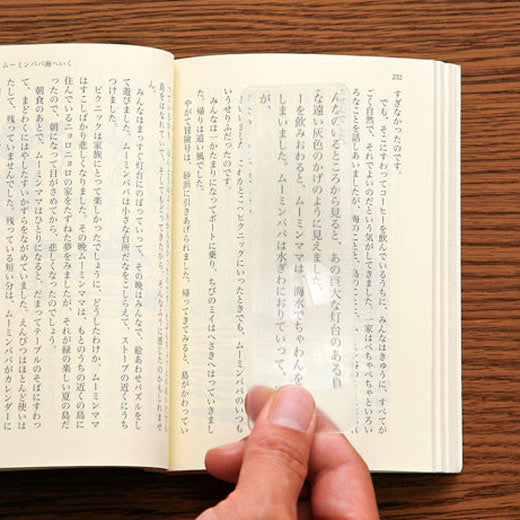 232
すぎなかったのです。
でも、そこにすわってコーヒーを飲んでいるうちに、みんなはきゅうに、すべてが
ごく自然で、それでよいのだという気がしてきました。一家はぺちゃぺちゃといろい
ろなことを話しあいましたが、海のことと、島のことに
んなのいるところから見ると、あの巨大な灯台のある島
な遠い灰色のかげのように見えました。
ーを飲みおわると、ムーミンママは、海水でちゃわんを
しまいました。ムーミンパパは水ぎわにおりていって、
が、
いうせりふだったのです。これからどこへピクニックにいったときでも、ムーミンパパのいつも
みんなは一かたまりになってボートに乗り、ちびのミイはへさきへはっていきまし
た。帰りは追い風でした。
やがて冒険号は、砂浜に引きあげられました。帰ってきてみると、島がかわってい
ムーミンパパ海へいく
島をはなれていて、そしてもどってきたから、そんなふうに感じたのかもしれませ
ん。
みんなはまっすぐ灯台にのぼっていって、その晩はみんなで、絵あわせパズルをし
て遊びました。ムーミンパパは小さな台所だなをこしらえて、ストーブの近くにうち
つけました。
ピクニックは家族にとって楽しかったでしょうに、どうしたわけか、ムーミンママ
はすこしばかり悲しくなりました。その晩ムーミンママは、もとのうちの近くの島に
住んでいるニョロニョロの家をたずねた夢をみましたが、それが緑の楽しい夏の島だ
ったので、朝になって目がさめてから、悲しくなったのでしょう。
朝食のあとで、ムーミンママはひとりになると、だまってテーブルのそばにすわっ
て、まどわくにはやしたすいかずらをながめていました。えんぴつはほとんど使いは
たして、残っていませんでした。残っている短い分は、ムーミンパパがカレンダーに